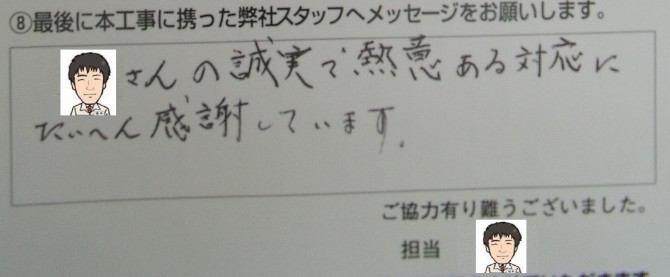 ⑧最後に本工事に携った弊社スタッフへメッセージをお願いします。
さんの誠実で熱意ある対応に
たいへん感謝しています。
ご協力有り難うございました。
担当